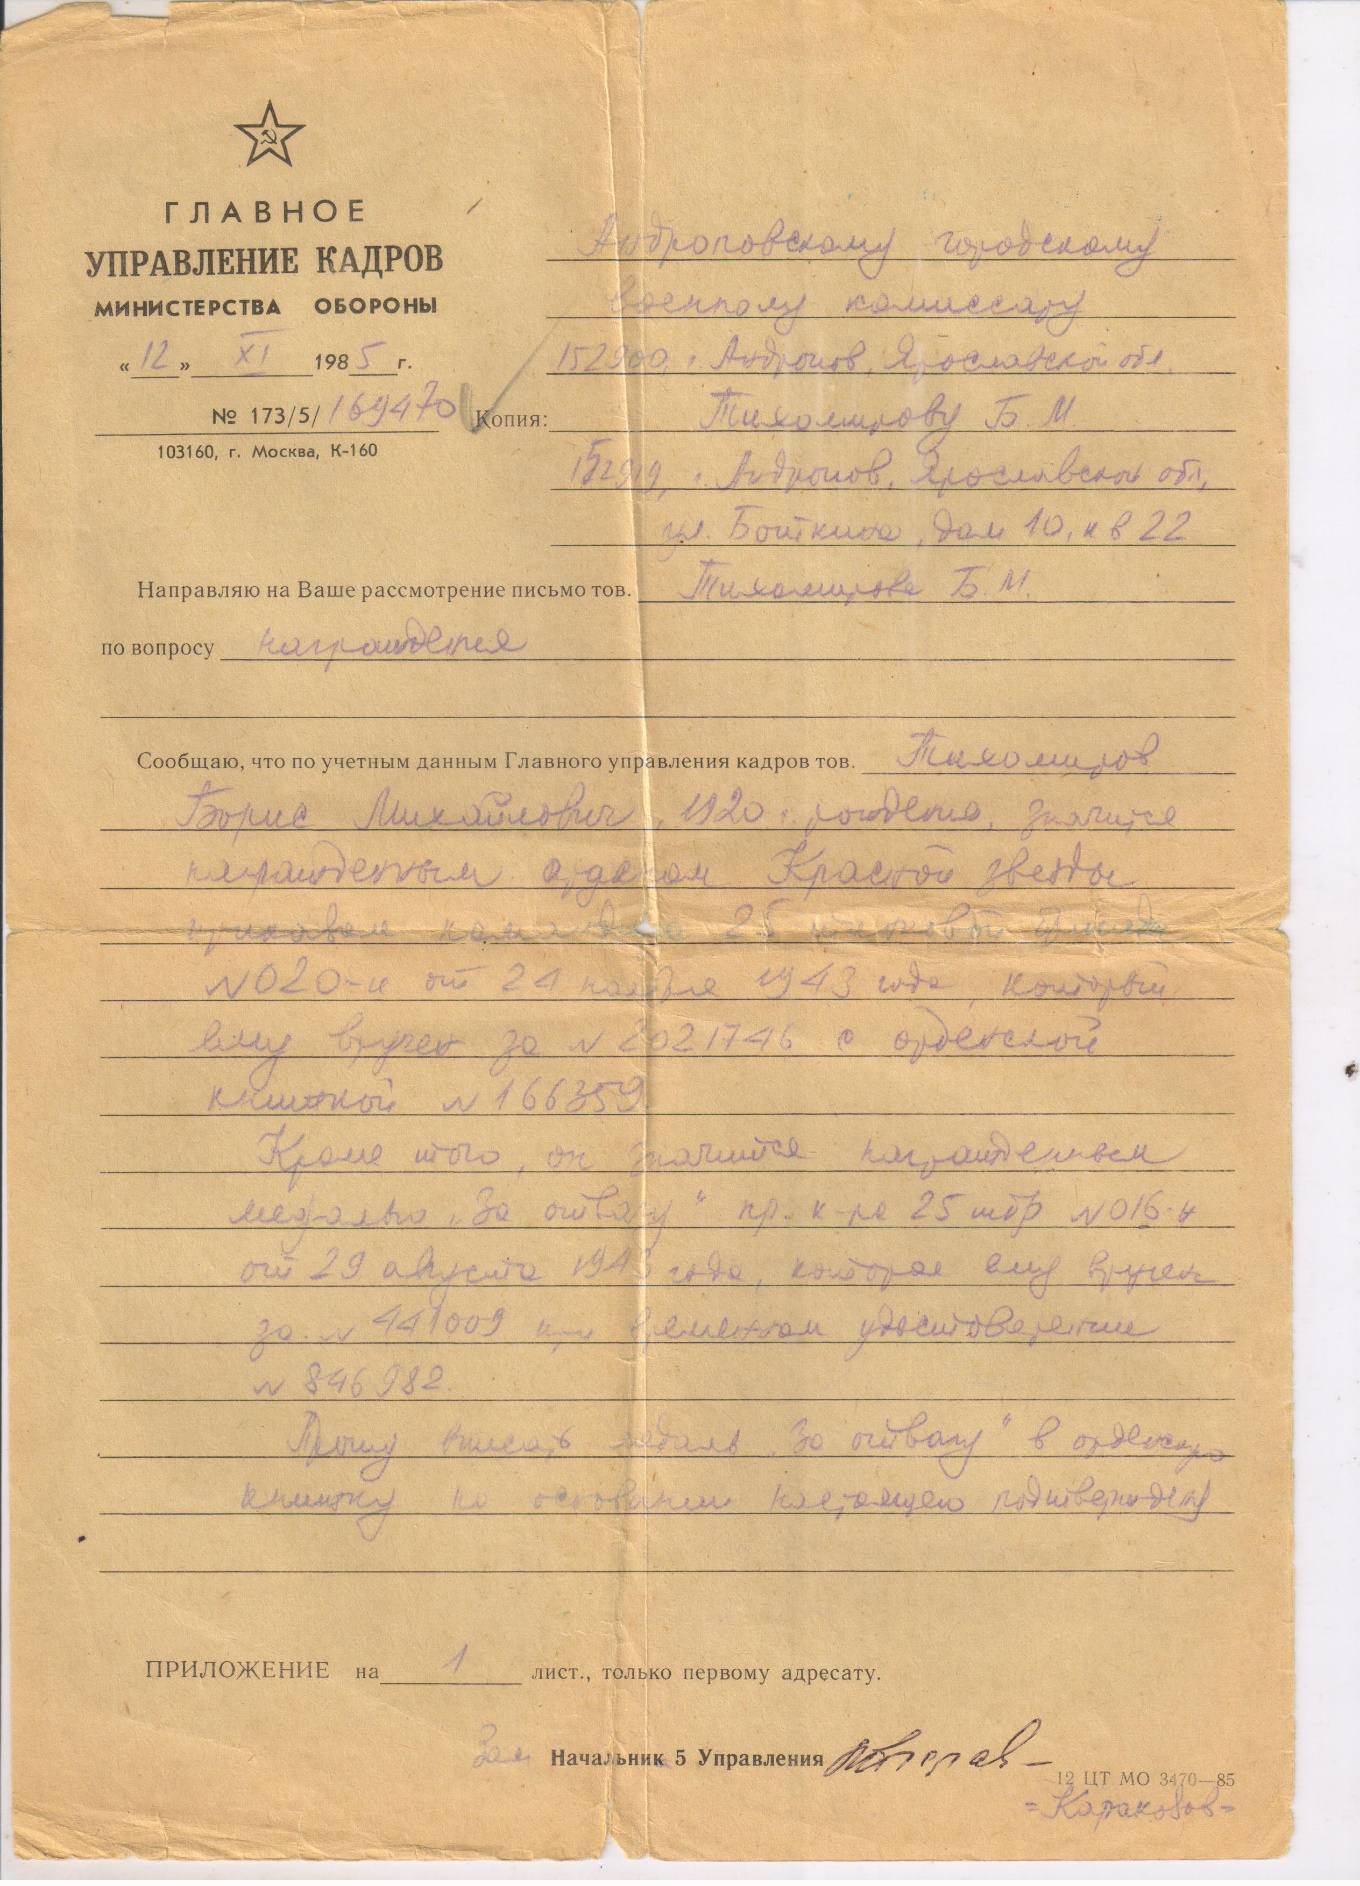 ГЛАВНОЕ
УПРАВЛЕНИЕ КАДРОВ
МИНИСТЕРСТВА ОБОРОНЫ
«12» XI 1985 г.
№ 173/5/169470
103160, г. Москва, К-160
Андроповскому городскому
военному комиссару
152900, г. Андропов, Ярославской обл.
Копия: Тихомирову Б. М.
152919, г. Андропов, Ярославской обл,
ул. Боткина, дом 10, кв 22
Направляю на Ваше рассмотрение письмо тов. Тихомирова Б. М.
по вопросу награждения
Сообщаю, что по учетным данным Главного управления кадров тов. Тихомиров
Борис Михайлович, 1920 г. рождения, значится
награжденным орденом Красной звезды
приказом командира 25 танковой
№ 020-н от 24 ноября 1943 года, который
ему вручен за № 2021746 с орденской
книжкой № 166359.
Кроме того, он значится награжденным
медалью „За отвагу" пр. к-ра 25 тбр № 016-н
от 29 августа 1943 года, которая ему вручен
за № 441009 при временном удостоверении
№ 846982.
Прошу вписать медаль „За отвагу" в орденскую
книжку на основании настоящего
ПРИЛОЖЕНИЕ на 1 лист., только первому адресату.
Зам Начальник 5 Управления
12 ЦТ МО 3470—85
=Караковов=